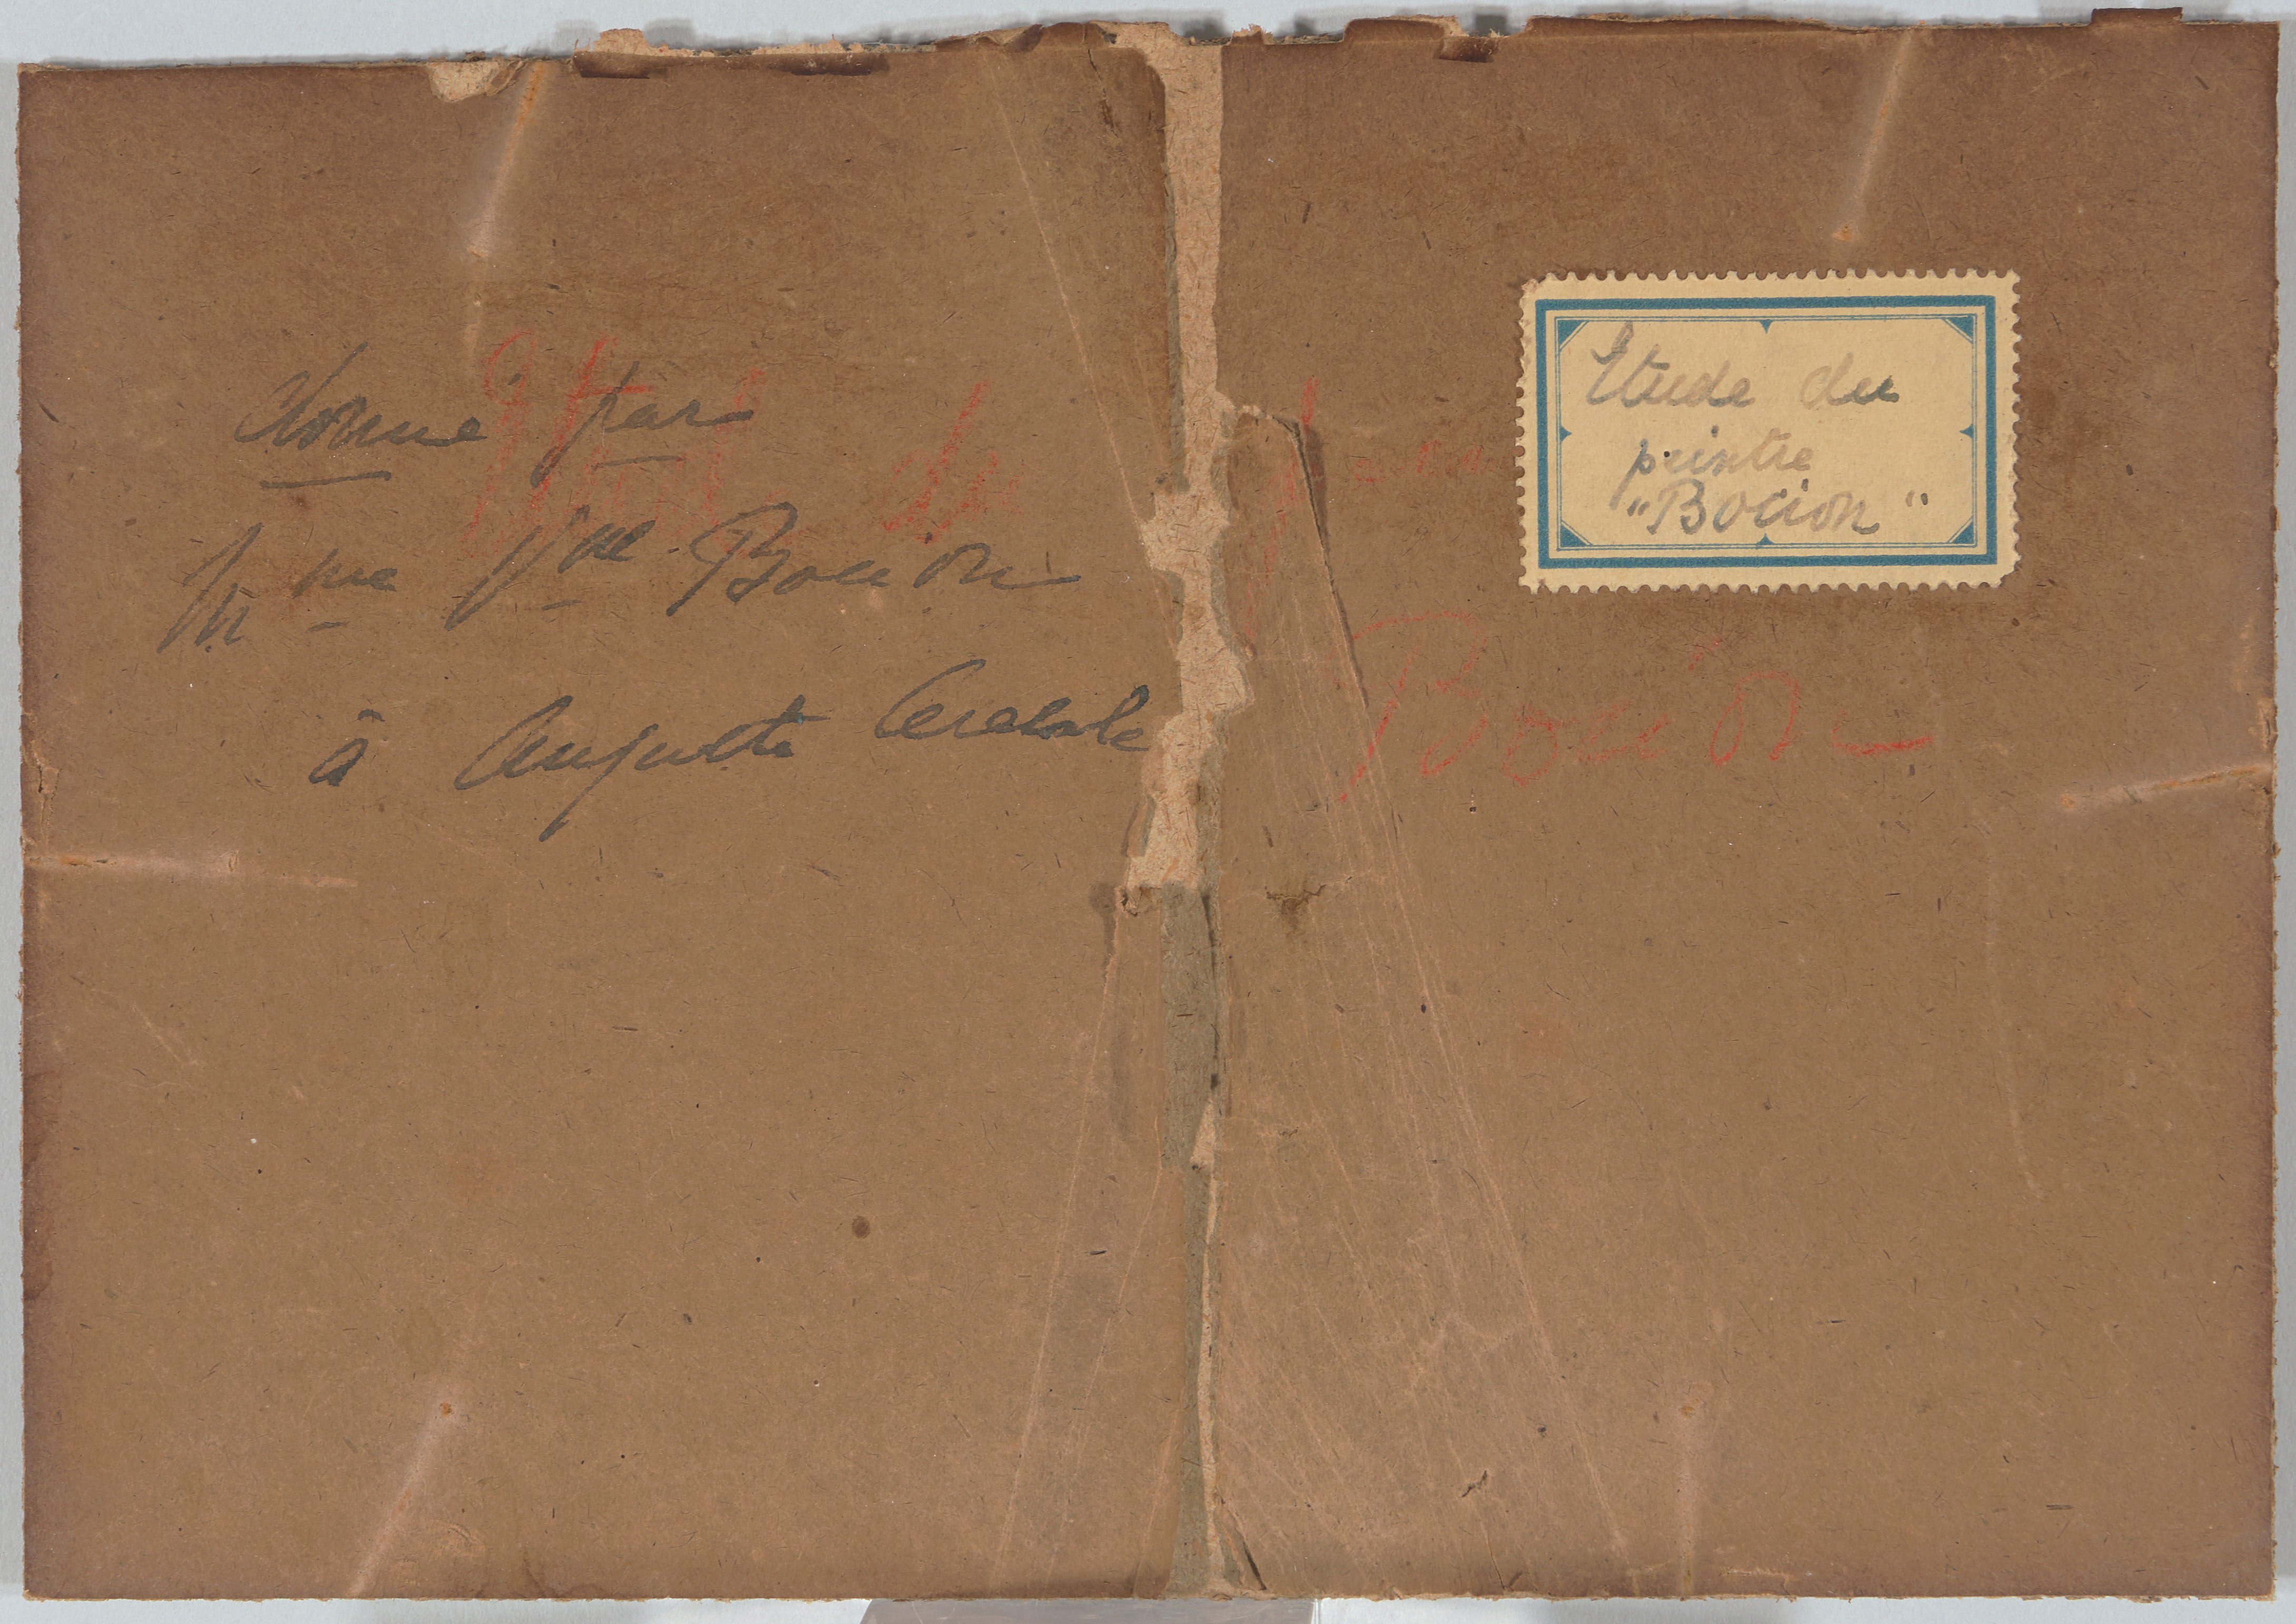 donné par
Mme Vve Bocion
à Auguste
Etude du
Bocion
Etude du
peintre
"Bocion"